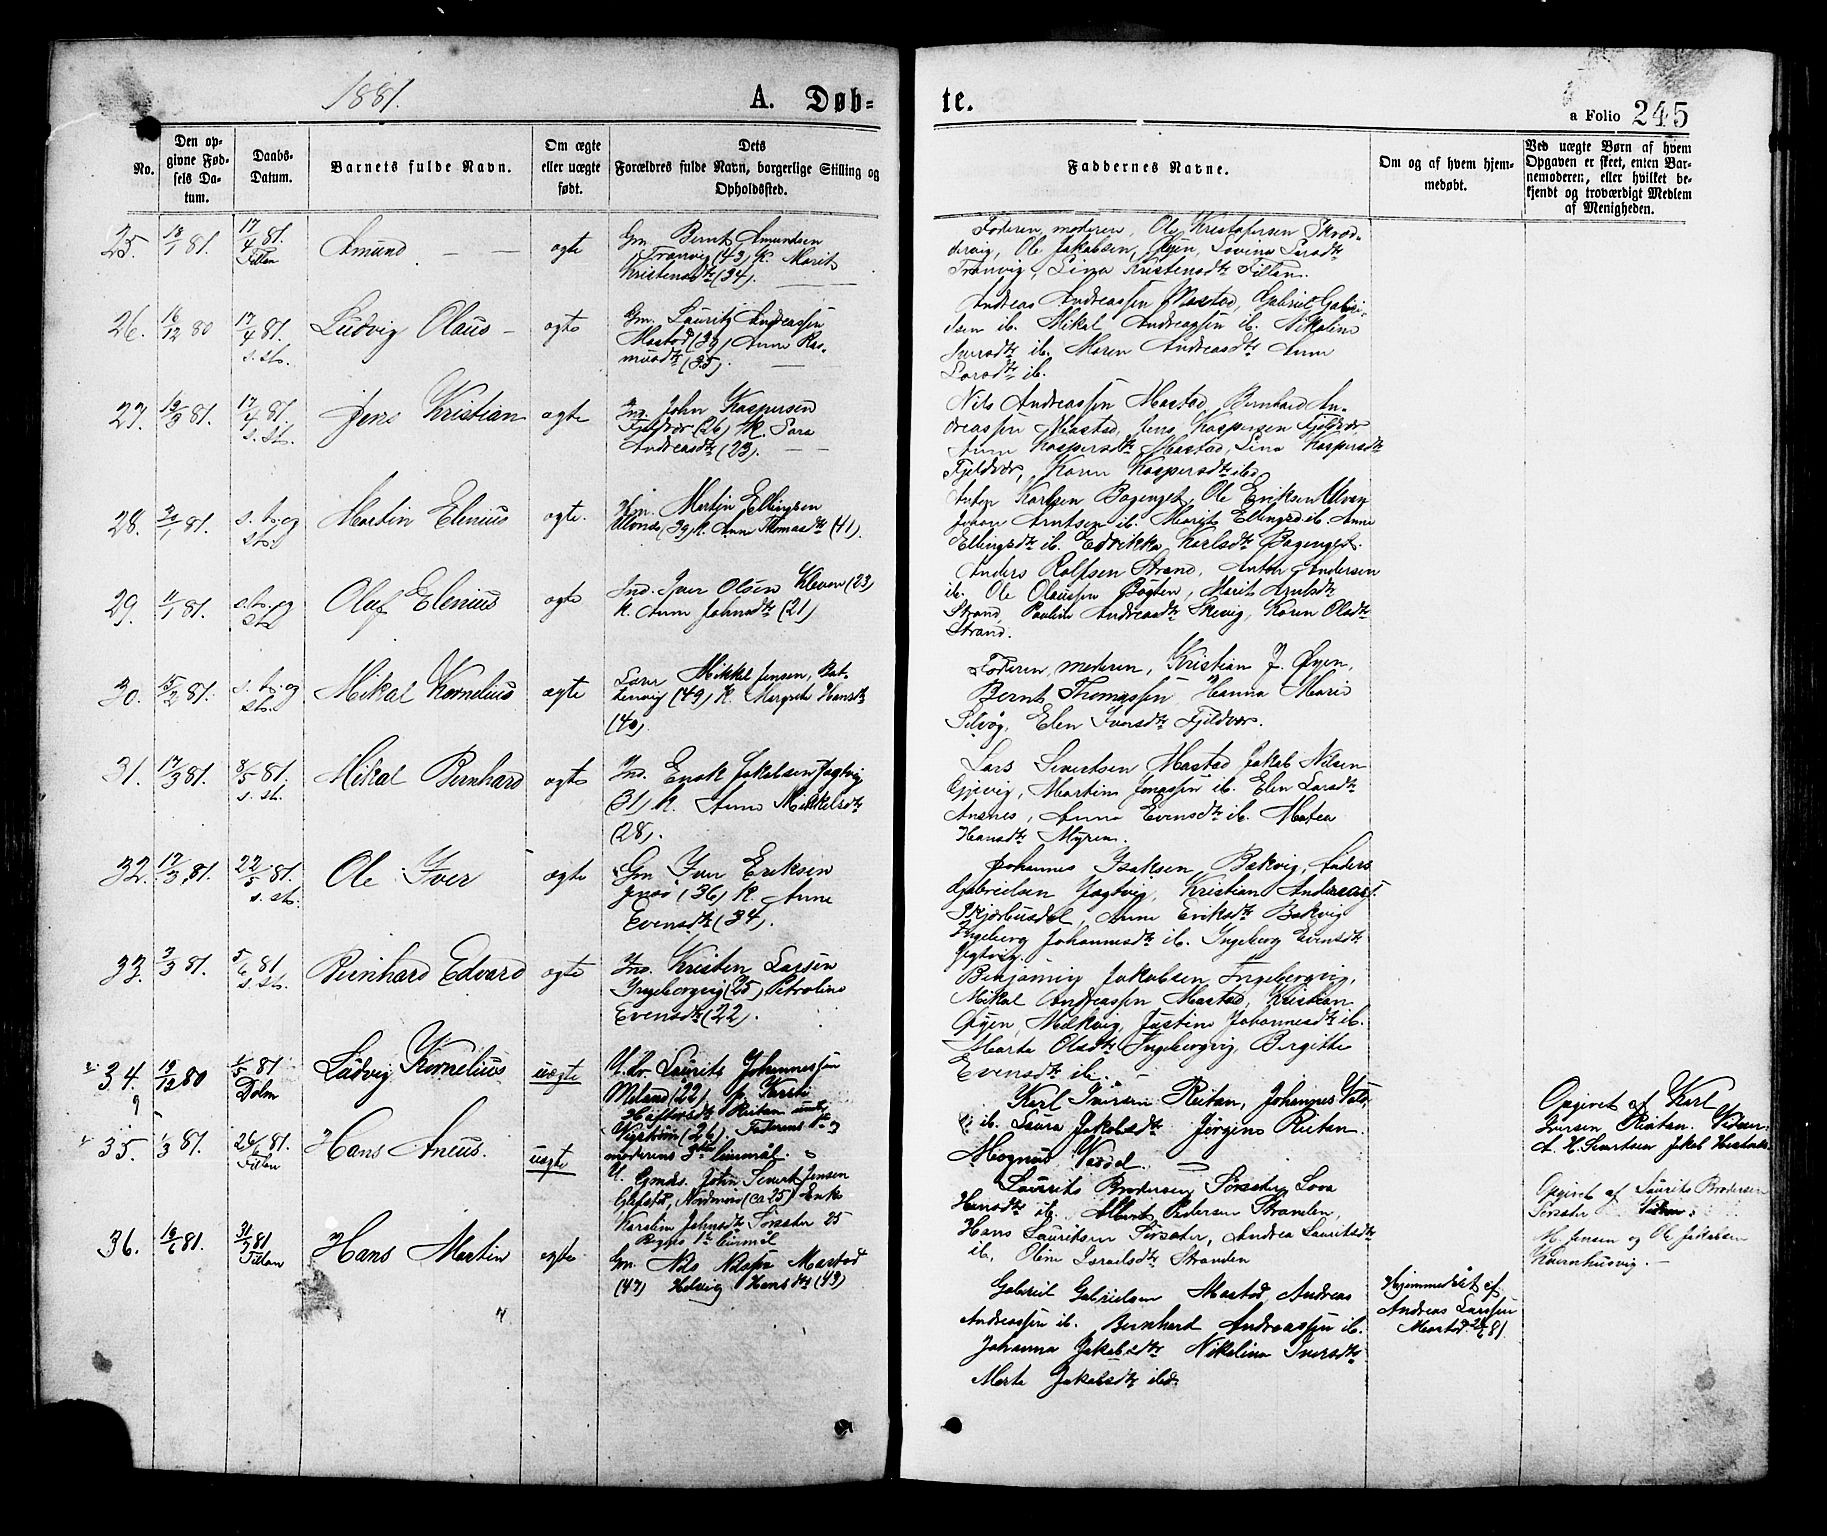 1881.
A. Døb-
te.
a Folio 245
No.
Den op-
givne Fød-
sels Da-
tum.
Daabs-
Datum.
Barnets fulde Navn.
Om ægte
eller uægte
født.
Dets
Forældres fulde Navn, borgerlige Stilling og
Opholdssted.
Faddernes Navne.
Om og af hvem hjem-
medøbt.
Ved uægte Børn af hvem
Opgaven er skeet, enten Bar-
nemoderen, eller hvilket be-
kjendt og troværdigt Medlem
af Menigheden.
25. 18/1 81. 17/4 81. Fillan
Amund
ægte
Gm. Bernt Amundsen
Tranvig (43) K. Marit
Kristensdtr (34).
Faderen, moderen, Ole Kristofersen
Ole Jakobsen Øyen, Lovina Larsdtr
Tranvig, Lina Kristensdtr Fillan.
26. 16/12 80 17/4 81. s. st.
Ludvig Olaus
ægte
Gm. Laurits Andreassen
Mastad (39) Anne Ras-
musdtr (35).
Andreas Andreassen Mastad, Gabriel Gabri-
elsen ib. Mikal Andreassen ib. Nikoline
Iversdtr ib. Maren Andreasdtr Anne
Larsdtr ib.
27. 19/3 81. 17/4 81. s. st.
Jens Kristian
ægte
Ind. John Kaspersen
Fjeldvær (26) K. Sara
Andreasdtr (23).
Nils Andreassen Mastad, Bernhard An-
dreassen Mastad, Jens Kaspersen Fjeldvær
Anne Kaspersdtr Mastad, Lina Kaspersdtr
Fjeldvær, Karen Kaspersdtr ibd.
28. 81. s. t. og st.
Martin Elenius
ægte.
Martin Ellingsen
Ulvonn (39) K. Anne Thomasdtr (41).
Anton Karlsen Bagenget, Ole Eriksen Ulvan
Johan Arntsen ib. Marit Ellingsd ib. Anne
Ellingsdtr ib. Edrikka Karlsdtr Bagenget.
29. 11/1 81. s. t. og st.
Oluf Elenius
ægte
Ind. Iver Olsen Kleven (23)
K. Anne Johnsdtr (21)
Anders Rolfsen Strand, Anton Andersen
ib. Ole Olaussen Bogten, Marit Arntsdtr
Strand, Pauline Andreasdtr Skevig, Karen Olsdtr
Strand.
30. 15/2 81. s. t. og st.
Mikal Kornelius
ægte
Mikkel Jensen, Bat-
tenvig (49) K. Margrete Hansdtr
(40).
Faderen, moderen, Kristian J. Øyen,
Bernt Thomassen Hanna Marie
Selvåg, Elen Iversdtr Fjeldvær.
31. 17/3 81. 8/5 81. s. st.
Mikal Bernhard
ægte
Ind. Enok Jakobsen Jøgtvig
(31) K. Anne Mikkelsdtr
(28).
Lars Sivertsen Mastad Jakob Nilsen
Gjevig, Martin Jonassen ib. Elen Larsdtr
Ansnes, Anna Evensdtr ib. Matea
Hansdtr Myren.
32. 17/3 81. 22/5 81. s. st.
Ole Iver
ægte
Gm Iver Eriksen
(36) K. Anne
Evensdtr (34).
Johannes Isaksen, Bakvig, Anders
Gabrielsen Jøgtvig, Kristian Andreas.
Skjærbusdal, Anne Eriksdtr Bakvig
Ingeberg Johannesdtr ib. Ingeberg Evensdtr
Jøgtvig.
33. 3/3 81. 5/6 81. s. st.
Bernhard Edvard
ægte
Ind. Kristen Larsen
Ingebergvig (25) Petroline
Evensdtr (22).
Benjamin Jakobsen Ingebergvig,
Mikal Andreassen Mastad, Kristian
Øyen, Melkvig, Justine Johannesdtr ib.
Marta Olsdtr Ingebergvig, Birgitte
Evensdtr ib.
34. 19/12 80 1/5 81 Dolm
Ludvig Kornelius
uægte
U. kr Laurits Johannessen
Meland (22) p. Karsti
Haftorsdtr Reitan
(26). Faderens 1te
moderens 3die leiermål.
Karl Iversen Reitan, Johannes
ib. Laura Jakobsdtr Jørgine Reitan.
Magnus Vassel.
Opgivet af Karl
Iversen Reitan. Vidner:
A. H. Sivertsen Jakob
35. 9/3 81. 26/6 81. Fillan
Hans Aneus.
uægte
U. Gmds. John Sivert Jensen
Nordmøre (ca 25) Enke
Karoline Johnsdtr Sørsæter 25
Begges 1te leiermål
Laurits Brodersen Sørsæter Lova
Hansdtr ib. Albert Pedersen Stranden,
Hans Lauritsen Sørsæter, Andrea Lauritsdtr
ib. Oline Israelsdtr Stranden
Opgivet af Laurits Brodersen
Sørsæter Vidner:
M. Jensen og Ole Jakobsen
Kvernhusvig.
36. 19/6 81. 31/7 81 Fillan
Hans Martin
ægte
Gm. Nils Nilssen Mastad
(47) Helvig Hansdtr (43)
Gabriel Gabrielsen Mastad, Andreas
Andreassen ib. Bernhard Andreassen ib.
Johanna Jakobsdtr Nikolina Iversdtr
Marta Jakobsdtr ibd.
Hjemmedøbt af
Andreas Larssen
Mastad 81.